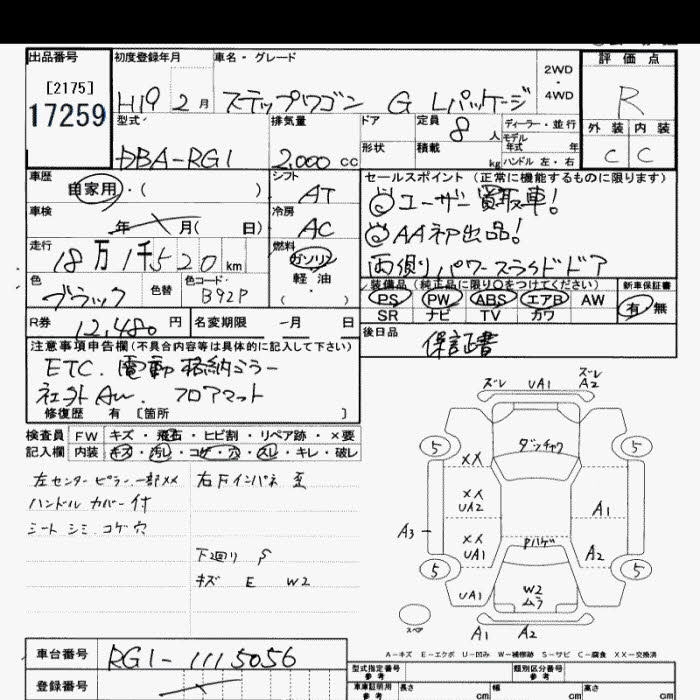 出品番号 初度登録年月 車名・グレード 評価点
[2175]
17259
H19 2月 ステップワゴン G Lパッケージ
2WD
・
4WD
R
型式 排気量 ドア 定員 8人 ディーラー・並行
モデル
年式 年
外装 内装
DBA-RG1 2,000 cc 形状 積載 kg ハンドル 左・右
C C
車歴 シフト セールスポイント (正常に機能するものに限ります)
自家用・( ) AT
◎ユーザー買取車!
車検 冷房
年 月( 日) AC
◎AA初出品!
走行 燃料
18万1千520km ガソリン
両側パワースライドドア
色 色替 色コード 軽油
ブラック B92P ・( )
装備品 (純正品に限り○をつけてください) 新車保証書
PS PW ABS エアB AW 有・無
SR ナビ TV カワ
R券 12,480円 名変期限 -月 日
後日品 保証書
注意事項申告欄(不具合内容等は具体的に記入して下さい)
ETC. 電動格納ミラー
社外AW. フロアマット
修復歴 有 [箇所 ]
検査員 FW キズ・飛石・ヒビ割・リペア跡・×要
記入欄 内装 キズ・汚レ・コゲ・穴・スレ・キレ・破レ
左センターピラー一部XX 右Fインパネ 歪
ハンドルカバー付
シートシミ コゲ穴
下廻り S
キズ E W2
ズレ UA1 ズレ
A2
5 ダッチャク 5
XX
XX
UA2 A1
A3
XX
UA1 Pハゲ A2
5 5
UA1 W2
ムラ
スペア
A1 A2
A-キズ E-エクボ U-凹み W-補修跡 S-サビ C-腐食 XX-交換済
車台番号 RG1-1115056
登録番号
型式指定番号
参考
類別区分番号
参考
車庫証明用
参考
長さ cm 幅 cm 高さ cm